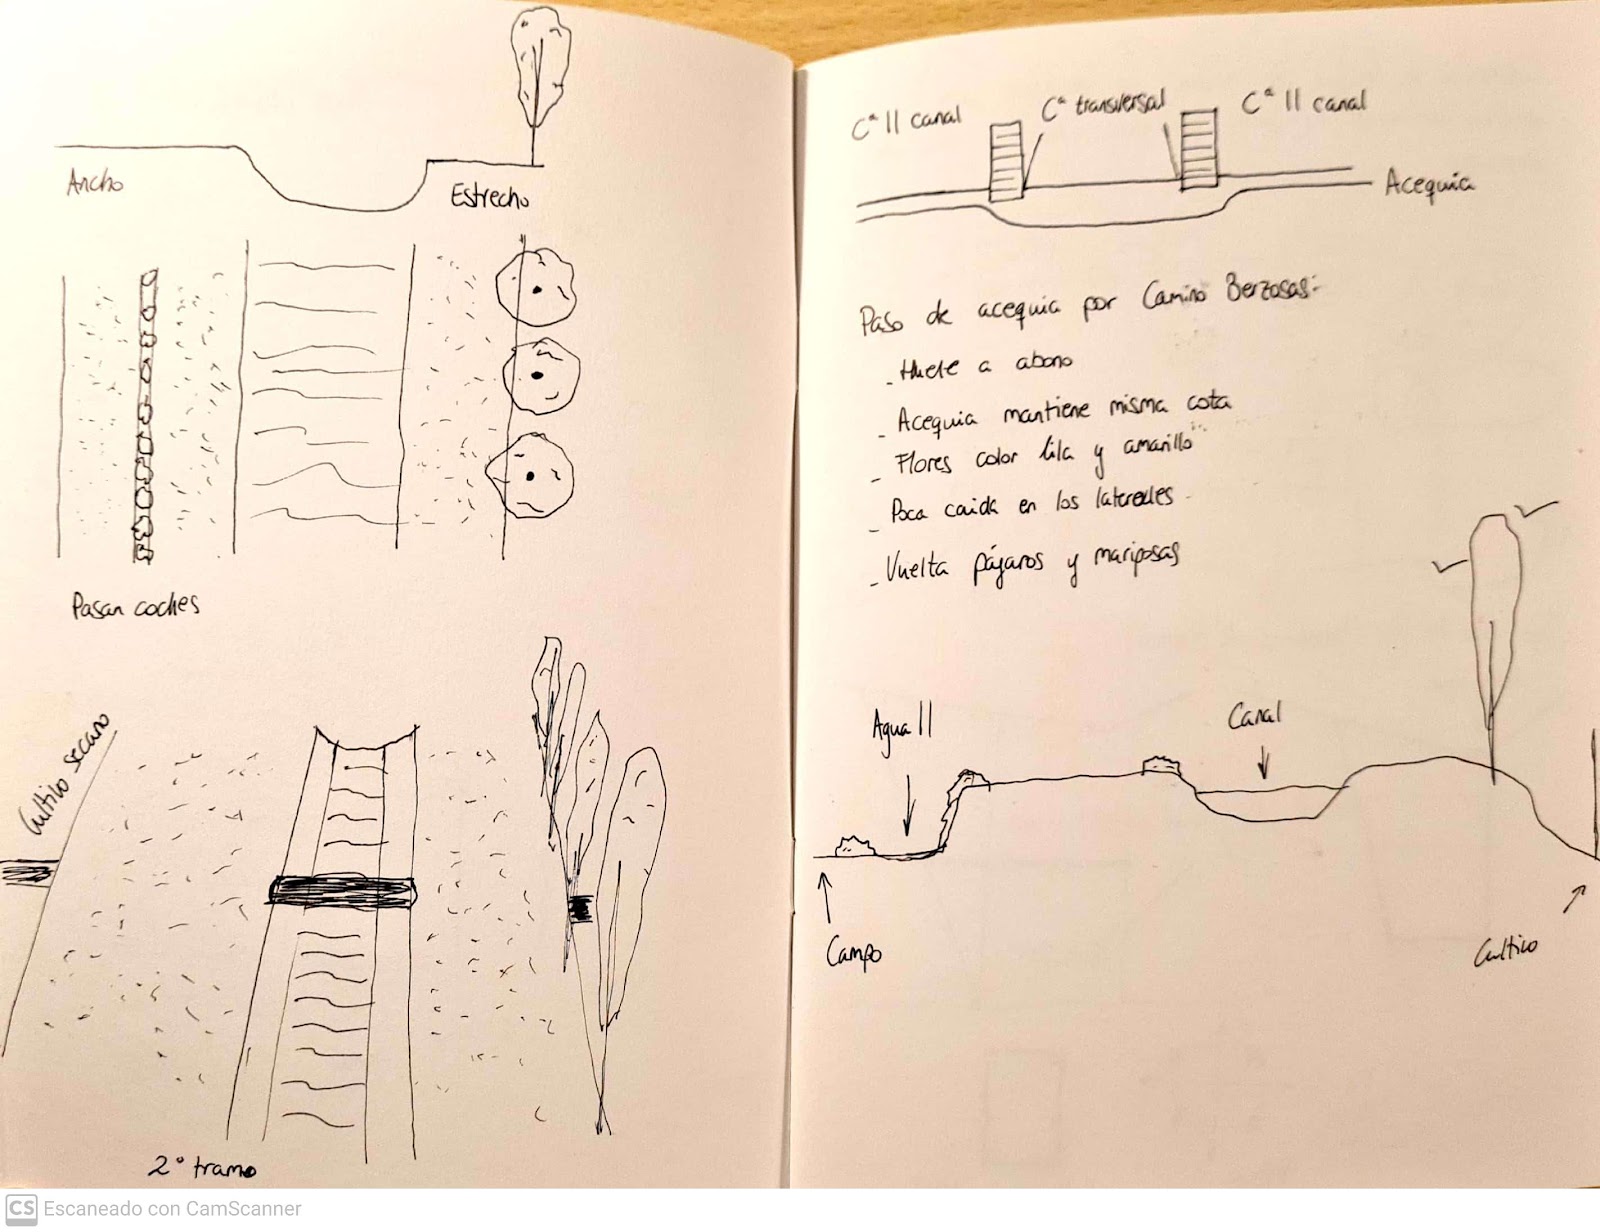 Ancho
Estrecho
Pasan coches
Cultivo secano
2º tramo
Cª || canal
Cª transversal
Cª || canal
Acequia
Paso de acequia por Camino Berzosas:
- Huele a abono
- Acequia mantiene misma cota
- Flores color lila y amarillo
- Poca caída en los laterales
- Vuelta pájaros y mariposas
Agua ||
Canal
Campo
Cultivo
CS Escaneado con CamScanner